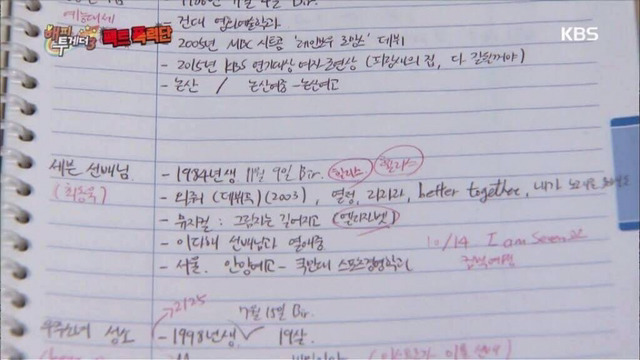 해피투게더3 팩트 폭력단
KBS
예능대세
건대 영화예술학과
- 2005년 MBC 시트콤 '레인보우 로망스' 데뷔
- 2015년 KBS 연기대상 여자 조연상 (파랑새의 집, 다 잘될거야)
- 논산 / 논산여중 - 논산여고
세븐 선배님 - 1984년생 11월 9일 Bir.
(최동욱) - 와줘 (데뷔곡) (2003), 열정, 라라라, better together, 내가 노래를
- 뮤지컬 : 그림자는 길어지고 (엘리자벳)
- 이다해 선배님과 열애중
10/14 I am Seven
- 서울. 안양예고 - 국민대 스포츠경영학과
컴백예정
2125
7월 Bir.
우주소녀 성소 - 1998년생 19살